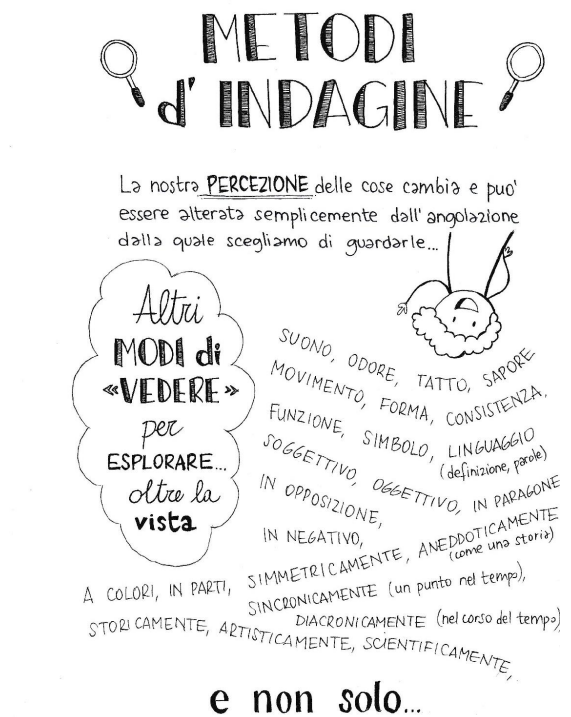 METODI
d'INDAGINE
La nostra PERCEZIONE delle cose cambia e puo'
essere alterata semplicemente dall'angolazione
dalla quale scegliamo di guardarle...
Altri
MODI di
«VEDERE»
per
ESPLORARE...
oltre la
vista
SUONO, ODORE, TATTO, SAPORE
MOVIMENTO, FORMA, CONSISTENZA,
FUNZIONE, SIMBOLO, LINGUAGGIO
(definizione, parole)
SOGGETTIVO, OGGETTIVO, IN PARAGONE
IN OPPOSIZIONE,
IN NEGATIVO,
A COLORI, IN PARTI, SIMMETRICAMENTE, ANEDDOTICAMENTE
(come una storia)
SINCRONICAMENTE (un punto nel tempo),
DIACRONICAMENTE (nel corso del tempo)
STORICAMENTE, ARTISTICAMENTE, SCIENTIFICAMENTE,
e non solo...